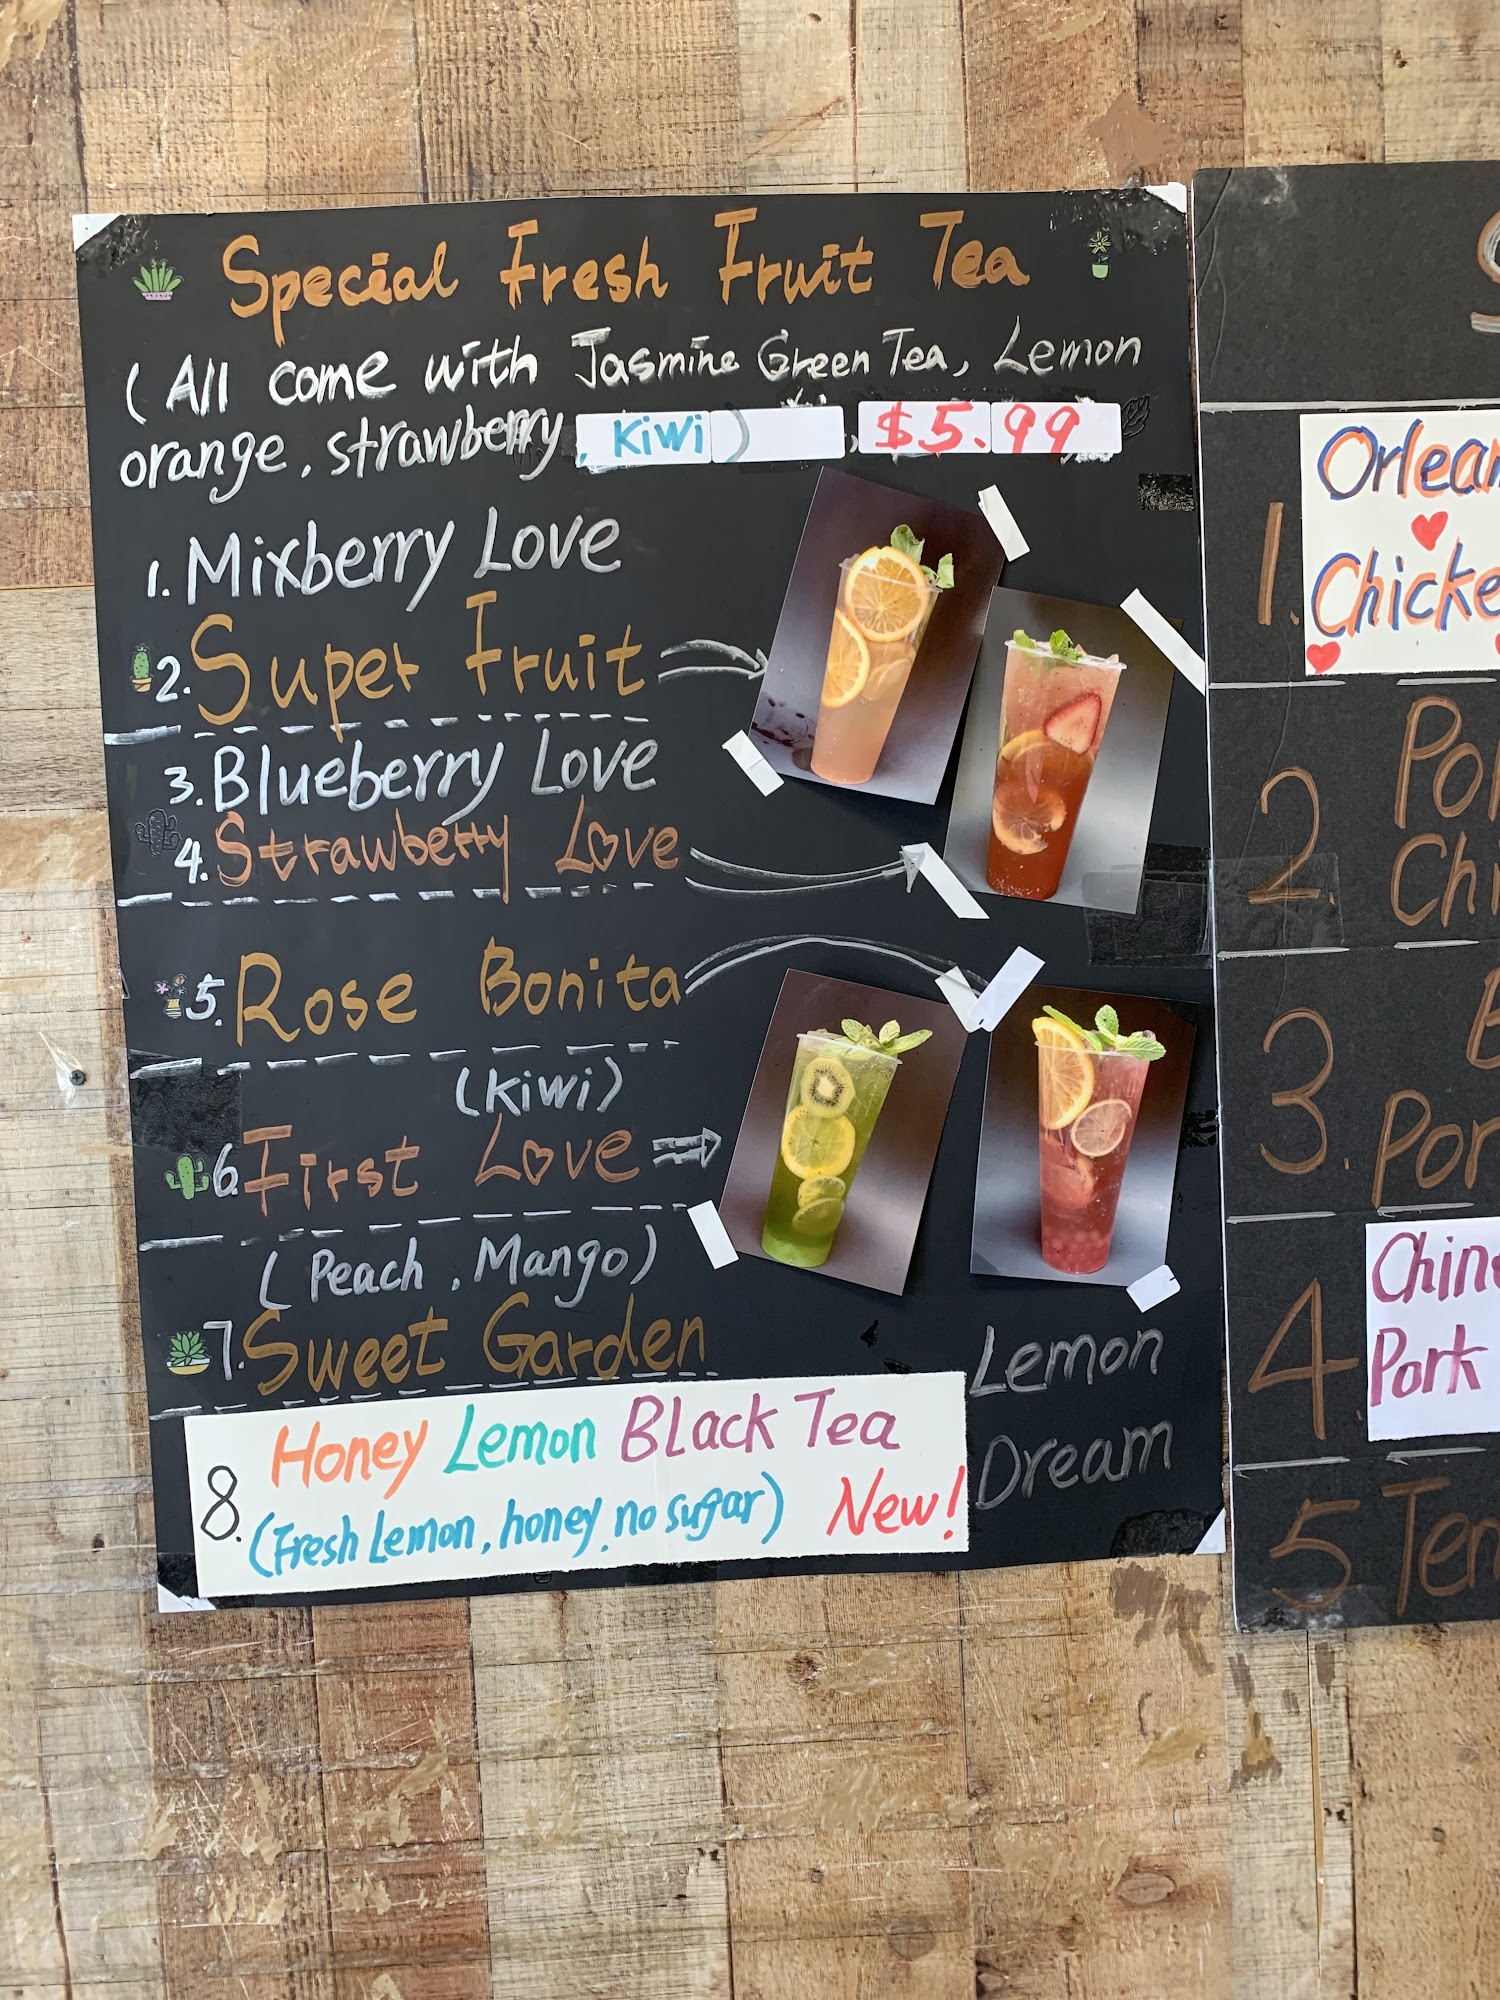 Special Fresh Fruit Tea
( All come with Jasmine Green Tea, Lemon
orange, strawberry, Kiwi ) , $5.99
1. Mixberry Love
2. Super Fruit
3. Blueberry Love
4. Strawberry Love
5. Rose Bonita
(Kiwi)
6. First Love
( Peach , Mango)
7. Sweet Garden
Lemon
Dream
8. Honey Lemon Black Tea
(Fresh Lemon, honey, no sugar) New!
1. Orlean
Chicke
2.
Ch
3.
Por
4. Chin
Pork
5. Ten